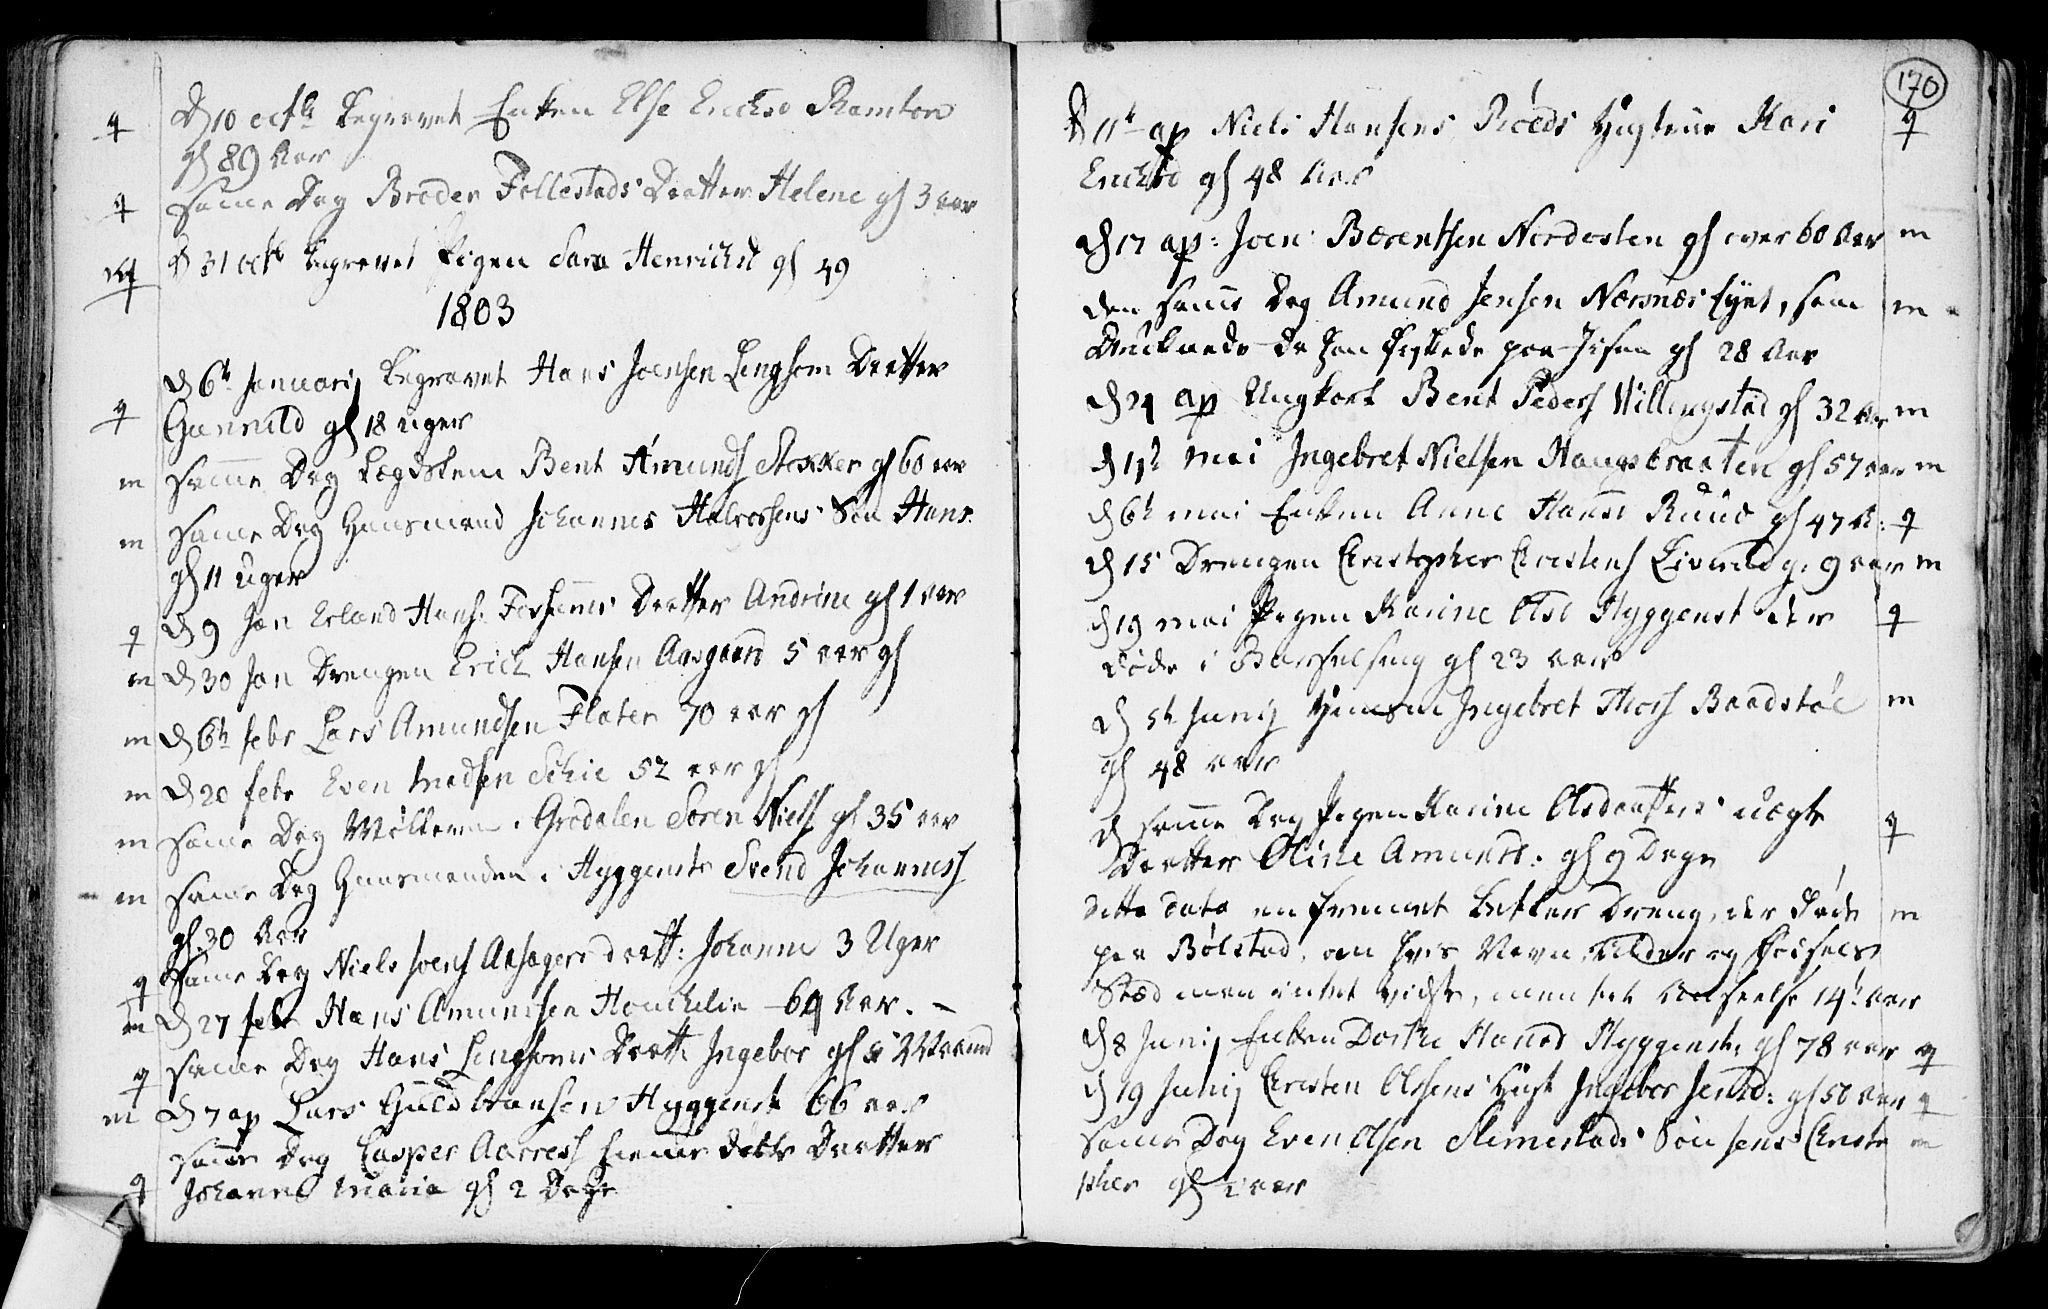 D 10 octb begravet Enken Else Ericksd Ramton
gl 89 Aar
q
samme Dag Breder Follestads Daatter Helene gl 3 aar
q
D 31 octb begravet Pigen Sara Henrichsd gl 49
q
1803
D 6t Januarij begravet Hans Joensen Lengsom Datter
Gunnild gl 18 uger
q
samme Dag Lægdslem Bent Amunds Stokker gl 60 aar
m
samme Dag Huusmand Johannes Halvorsens Søn Hans
m
gl 11 uger
D 9 Jan Erland Hans: Daatter Andrine gl 1 aar
q
D 30 Jan Drengen Erich Hansen Aasgaard 5 aar gl
m
D 6t febr Lars Amundsen Flaten 70 aar gl
m
D 20 febr Even Madsen Schie 52 aar gl
m
samme Dag Mølleren i Grodalen Søren Niels gl 35 aar
m
samme Dag Huusmanden i Hyggenste Svend Johanness
m
gl 30 Aar
samme Dag Niels Joens Aasagers daatt: Johanne 3 Uger
q
D 27 febr Hans Amundsen 69 Aar. –
m
samme Dag Hans Lengsoms Daatt: Ingebor gl
q
D 7 ap Lars Guldbransen Hyggenst 66 aar
m
samme Dag Casper Aarress Daatter
Johanne Maria gl 2 Dage
q
170
D 11t ap Niels Hansens Røeds Hustrue Kari
q
Ericksd gl 48 Aar
D 17 ap: Joen Bærentsen Nordosten gl over 60 Aar
m
den samme Dag Amund Jensen Nærsnæs, som
m
Druknede da han fiskede paa Jisen gl 28 Aar
D 24 ap Ungkarl Bent Peders Villingstad gl 32 Aar
m
D 1t Mai Ingebret Nielsen Haugsbraaten gl 57 aar
m
D 6t mai Enken Anne Hansd Ruud gl 47 A:
q
D 15 Drengen Christopher Christens g: 9 aar
m
D 19 mai Pigen Karine Olsd Hyggenst der
q
døde i Barselseng gl 23 aar
D 5t Junij Huusm Ingebret Thors Baadstøe
m
gl 48 aar
D samme Dag Pigen Karine Olsdaatters uægte
q
Daatter Oline Amunds: gl 9 Dage
ditto dato en fremmet Betler Dreng, der døde
m
paa Bølstad, om hvis Navn, Alder og fødsels
Sted man intet vidste, men
14 Aar
D 8 Junij Enken Dorthe Hansd Hyggenst: gl 78 aar
q
D 19 Junij Christen Olsens Hust Ingebor Jensd: gl 50 Aar
q
samme Dag Even Olsen Slemestads Søn Jens Christo
m
pher gl aar